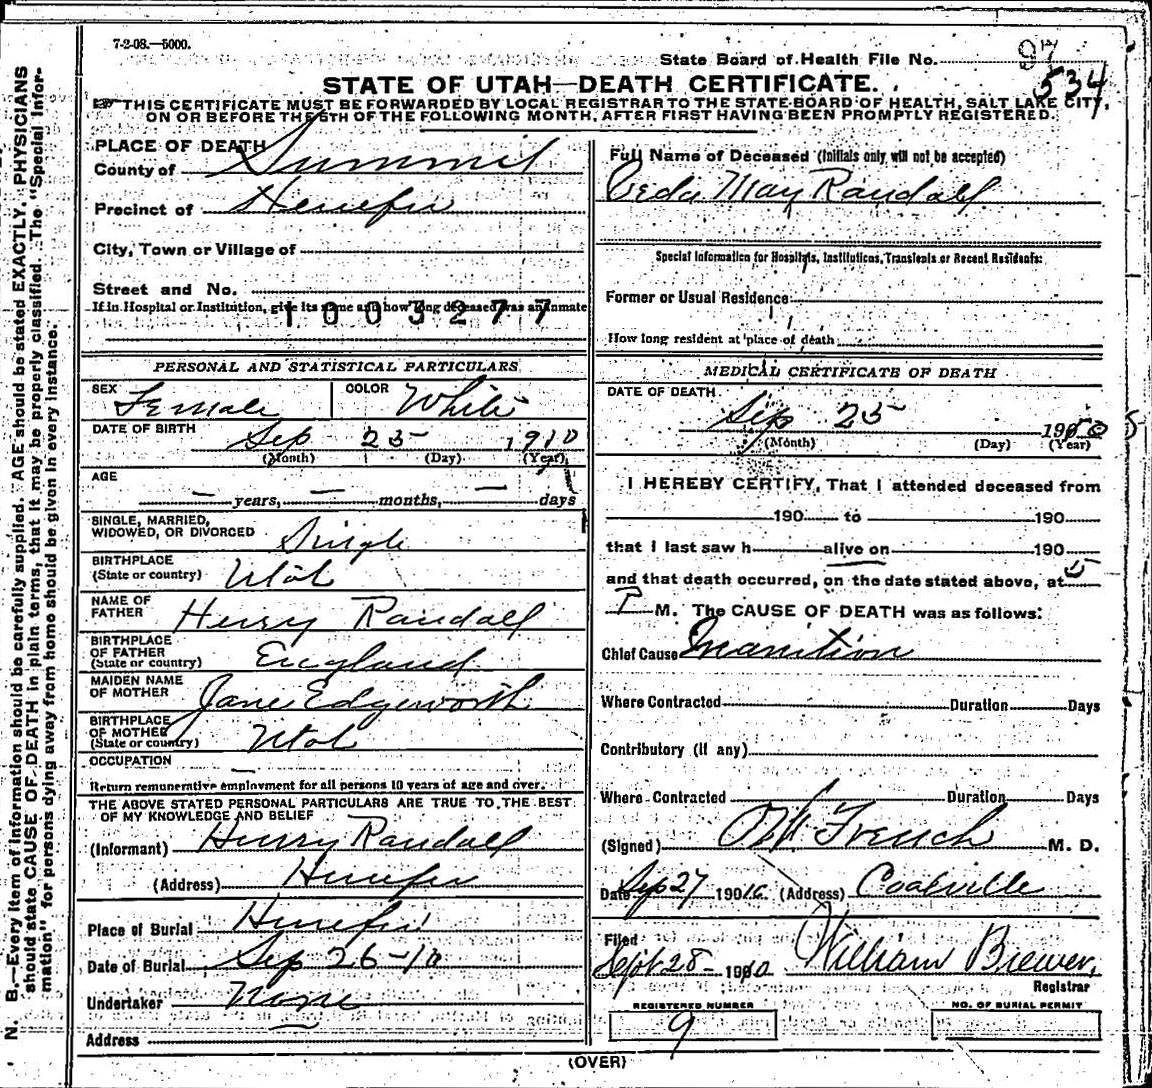 7-2-08.—5000.
State Board of Health File No.
534
STATE OF UTAH—DEATH CERTIFICATE.
THIS CERTIFICATE MUST BE FORWARDED BY LOCAL REGISTRAR TO THE STATE BOARD OF HEALTH, SALT LAKE CITY,
ON OR BEFORE THE 5TH OF THE FOLLOWING MONTH, AFTER FIRST HAVING BEEN PROMPTLY REGISTERED.
PLACE OF DEATH
County of Summit
Precinct of Henefer
City, Town or Village of
Street and No.
If in Hospital or Institution, give its name and how long deceased was an inmate
1003277
PERSONAL AND STATISTICAL PARTICULARS
SEX Female COLOR White
DATE OF BIRTH Sep 25 1910
(Month) (Day) (Year)
AGE
— years, — months, — days
SINGLE, MARRIED,
WIDOWED, OR DIVORCED Single
BIRTHPLACE
(State or country) Utah
NAME OF
FATHER Henry Randall
BIRTHPLACE
OF FATHER
(State or country) England
MAIDEN NAME
OF MOTHER Jane Edgeworth
BIRTHPLACE
OF MOTHER
(State or country) Utah
OCCUPATION —
Return remunerative employment for all persons 10 years of age and over.
THE ABOVE STATED PERSONAL PARTICULARS ARE TRUE TO THE BEST
OF MY KNOWLEDGE AND BELIEF
(Informant) Henry Randall
(Address) Henefer
Place of Burial Henefer
Date of Burial Sep 26-10
Undertaker None
Address
Full Name of Deceased (Initials only will not be accepted)
May Randall
Special Information for Hospitals, Institutions, Transients or Recent Residents:
Former or Usual Residence
How long resident at place of death
MEDICAL CERTIFICATE OF DEATH
DATE OF DEATH
Sep 25 1910
(Month) (Day) (Year)
I HEREBY CERTIFY, That I attended deceased from
190 to 190
that I last saw h alive on 190
and that death occurred, on the date stated above, at 5
P M. The CAUSE OF DEATH was as follows:
Chief Cause Inanition
Where Contracted Duration Days
Contributory (if any)
Where Contracted Duration Days
(Signed) French M. D.
Date Sep 27 1910. (Address) Coalville
Filed
Sept 28- 1910 William Brewer,
Registrar
REGISTERED NUMBER
9
NO. OF BURIAL PERMIT
(OVER)
N. B.—Every item of information should be carefully supplied. AGE should be stated EXACTLY. PHYSICIANS
should state CAUSE OF DEATH in plain terms, that it may be properly classified. The "Special Infor-
mation" for persons dying away from home should be given in every instance.